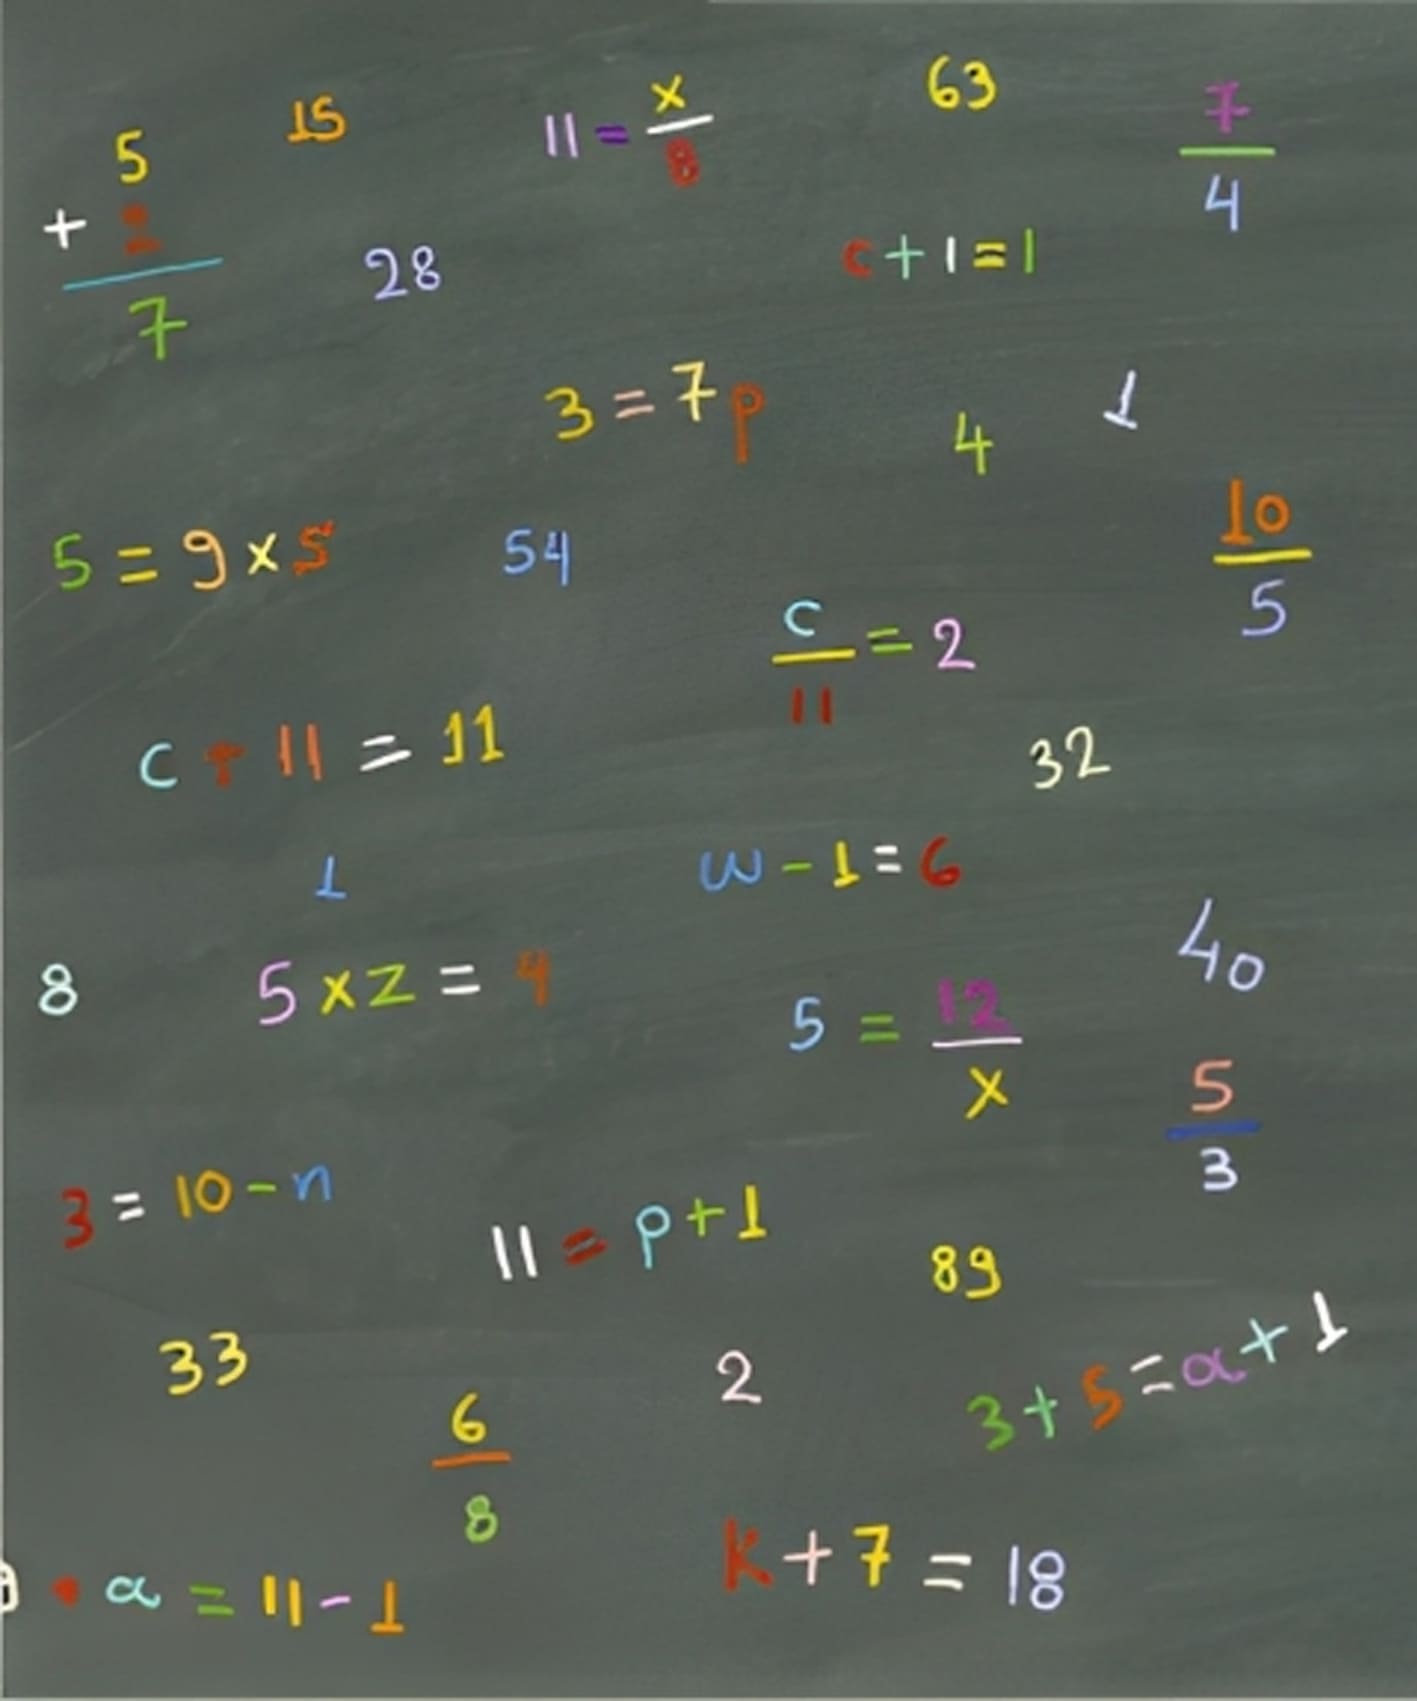 5
+ 2
7
15
11 = x/8
63
7/4
28
c + 1 = 1
3 = 7p
4
1
10/5
5 = 9 x s
54
c/11 = 2
c + 11 = 11
32
1
w - 1 = 6
8
5 x z = 4
40
5 = 12/x
5/3
3 = 10 - n
11 = p + 1
89
33
2
3 + 5 = a + 1
6/8
• a = 11 - 1
k + 7 = 18